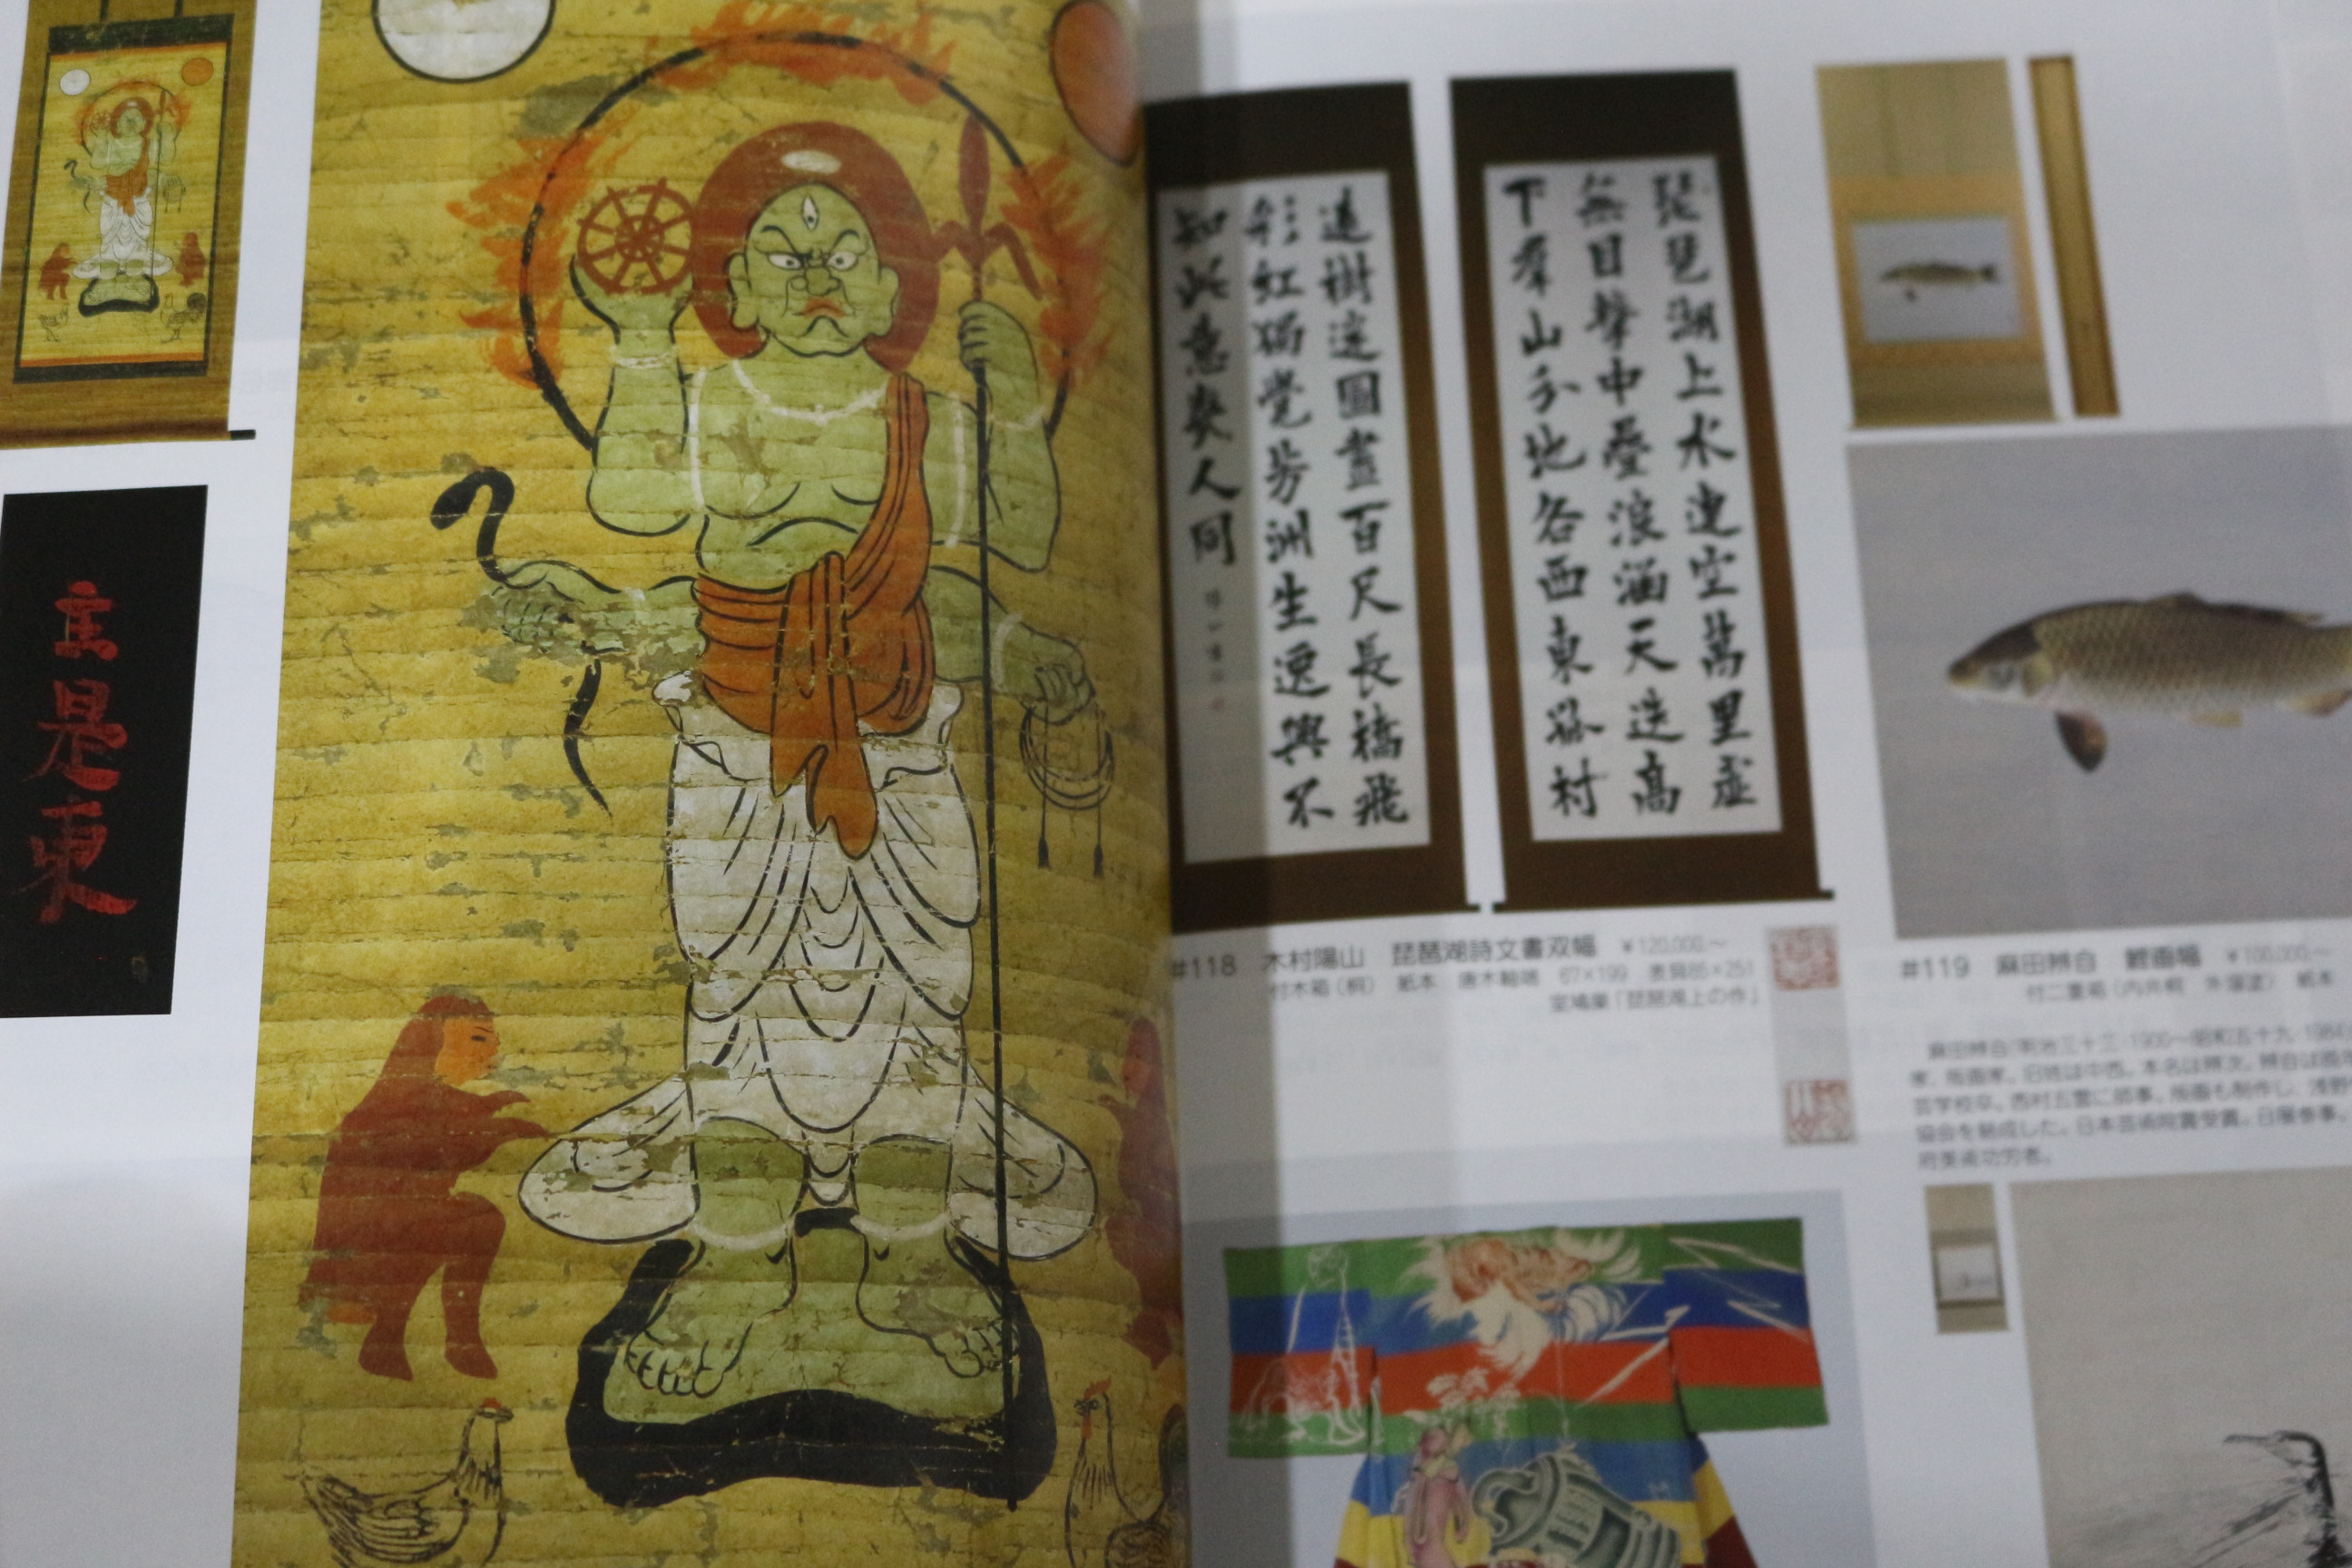 是東
琵琶湖上水連空萬里虚
無目擊中疊浪涵天迷高
下羣山分地各西東孤村
遠樹圖畫百尺長橋飛
彩虹獨覺芳洲生逸興不
知此意人同
#118 木村陽山 琵琶湖詩文書双幅 ￥120,000～
付木箱（桐） 紙本 唐木軸端 67×199 表具85×251
室鳩巣「琵琶湖上の作」
#119 麻田辨自 鯉画幅 ￥100,000～
付二重箱（内共桐 外溜塗） 紙本
麻田辨自(明治三十三・1900～昭和五十九・1984
家、版画家。旧姓は中西。本名は辨次。辨自は
芸学校卒。西村五雲に師事。版画も制作し、浅野
協会を結成した。日本芸術院賞受賞。日展参事、
府美術功労者。